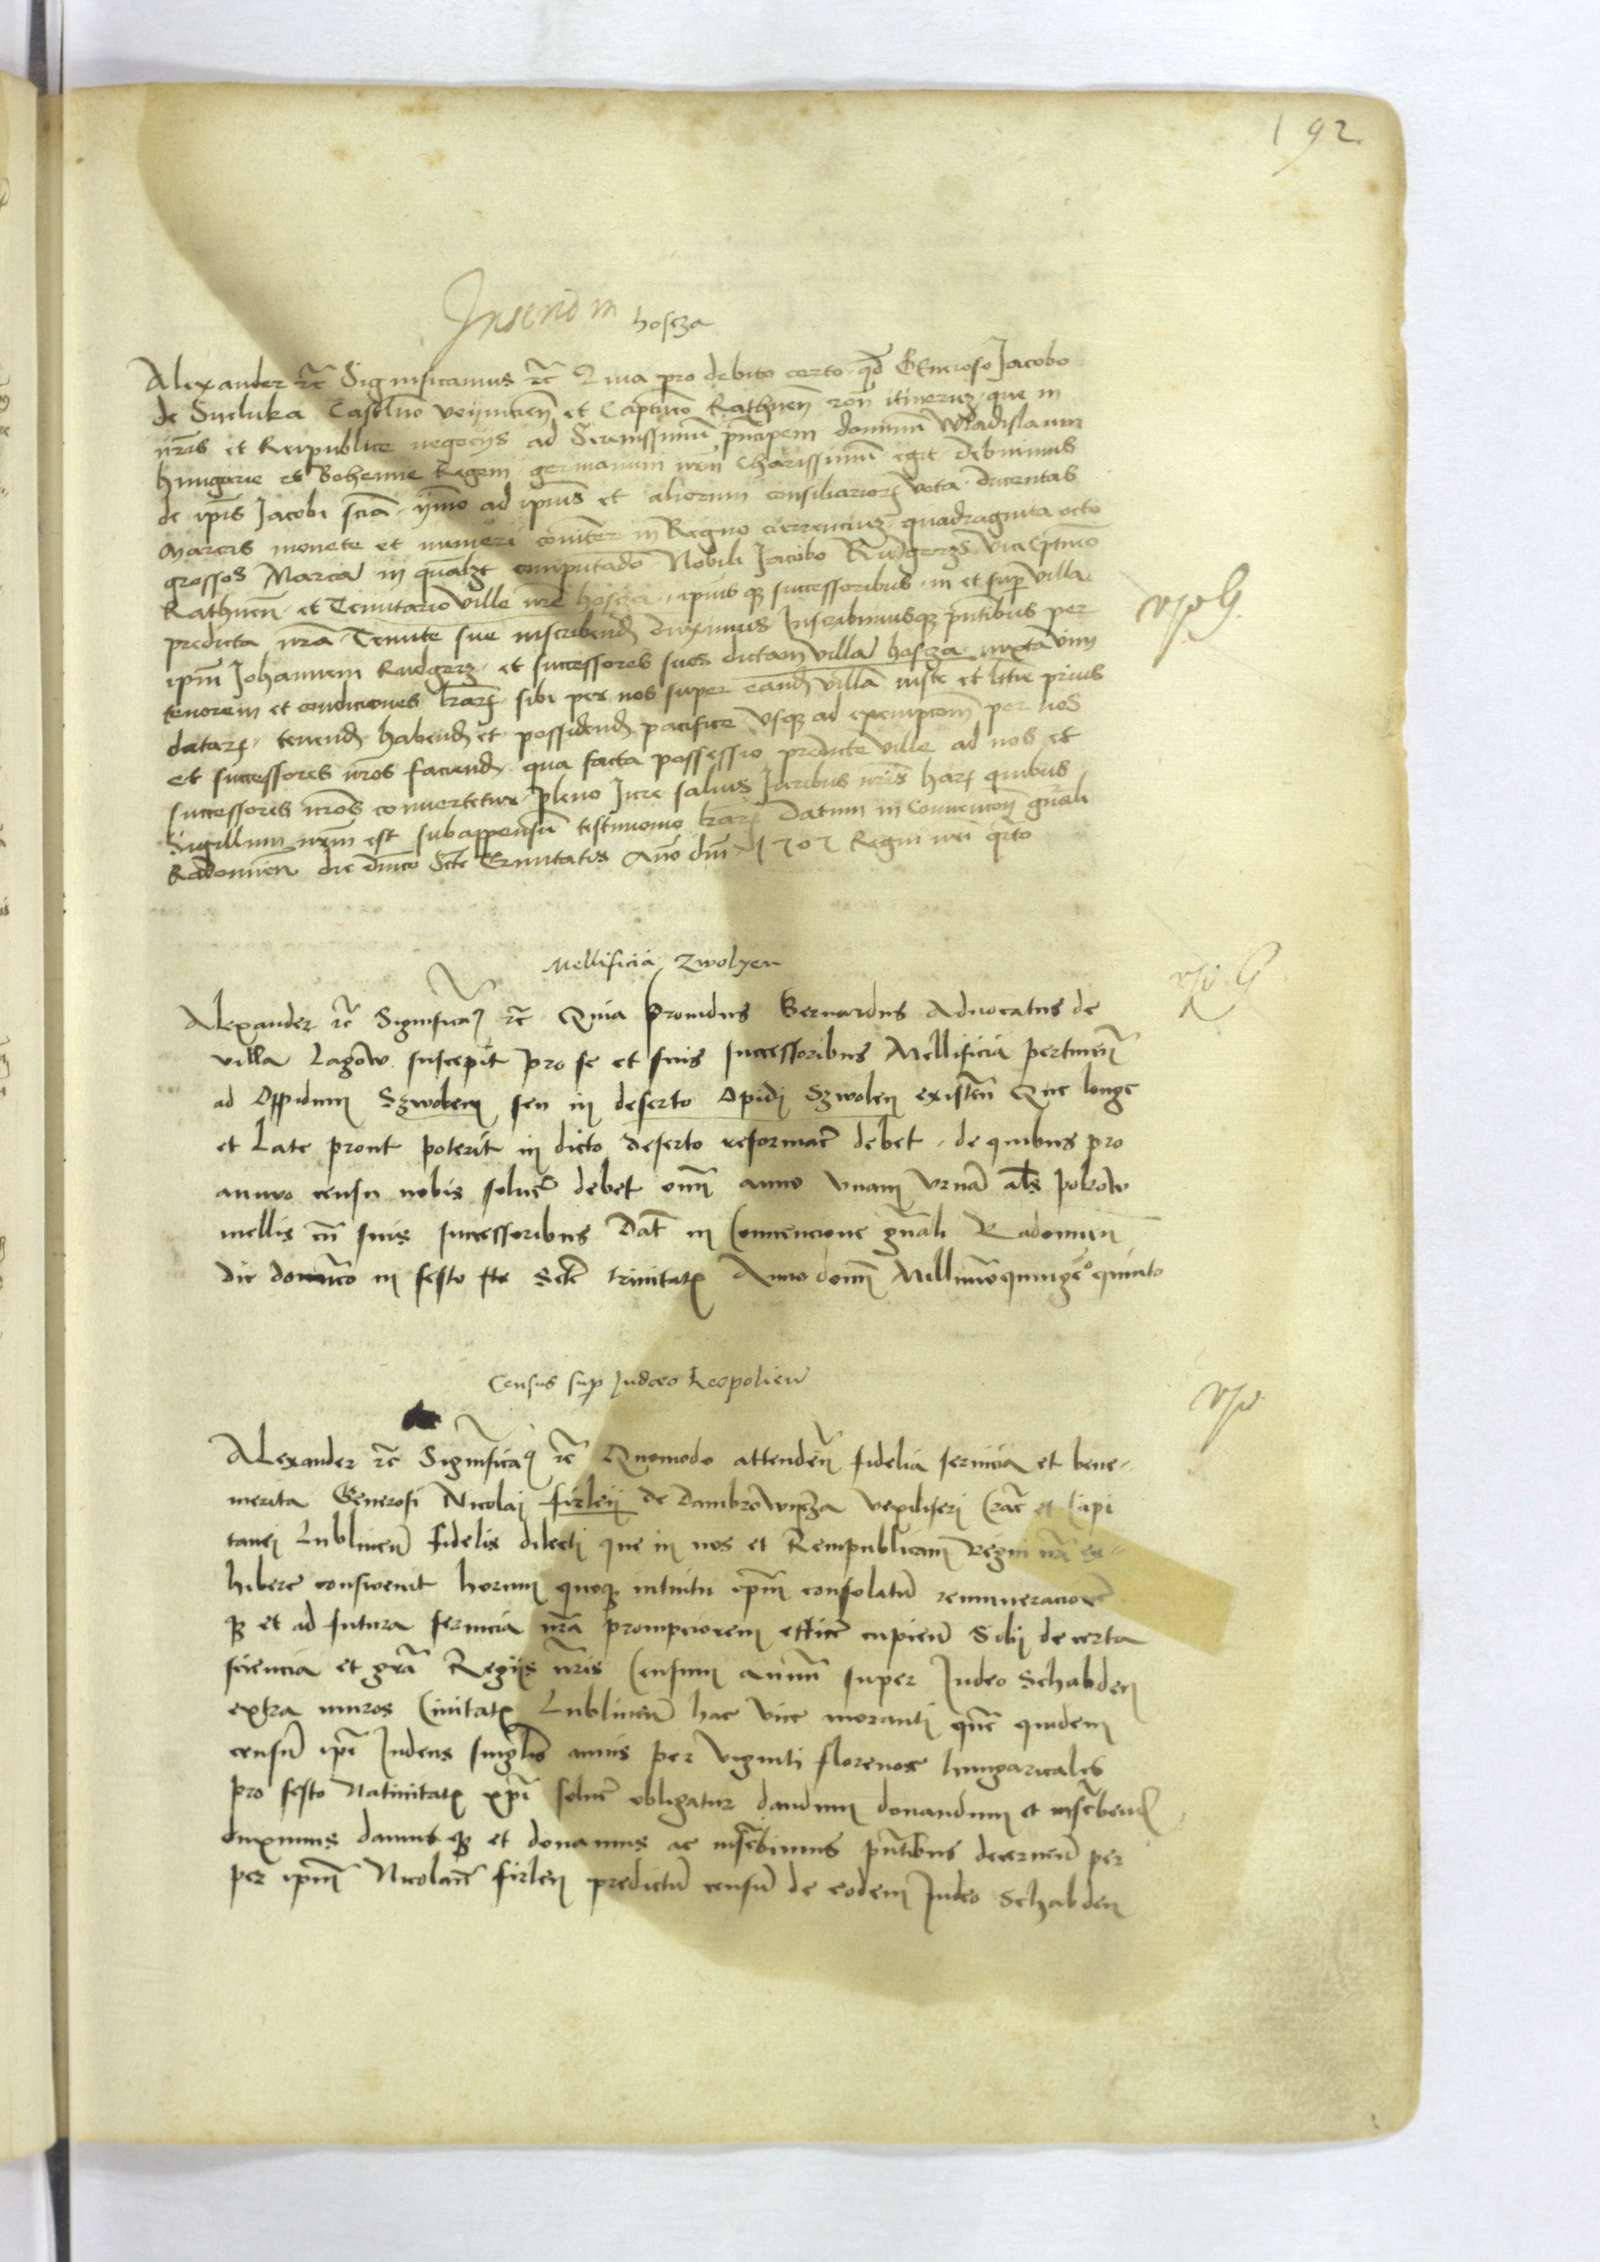 192
Inscriō in hoscza
Alexander rč Significamus rč Quia pro debito certo qd Generoso Jacobo
de Syeluka Castlno voyniceñ et Capitneo Rathneñ roñ itineruz que in
nris et Reipublice negocijs ad Serenissimū principem dominū Wladislaum
hungarie et Bohemie Regem germanum nrm Charissimū egit debuimus
de ipis Jacobi sciā ymo ad ipius et aliorum consiliarior vota ducentas
Marcas monete et numeri comitr in Regno currentiuz quadraginta octo
grossos Marcā in qualzt computādo Nobili Jacobo Rudgerz vicecaptneo
Rathneñ et Tenutario ville nre hoscza ipius qz successoribus in et sup villa
predicta nrā Tenute sue inscribend duximus Inscribimusqz pntibus per
ipm Johannem Rudgerz et successores suos dictam villā hoscza iuxta vim
tenorem et condiciones lrar sibi per nos super eand villā iuste et ltie prius
datar tenend habend et possidend pacifice vsqz ad exempcom per nos
et successores nros faciend qua facta possessio predicte ville ad nos et
successores nros conuertetur pleno Jure saluis Juribus nris har quibus
Sigillum nrm est subappensū testimonio lrar Datum in Conuencoñ gnali
Radomieñ die dnico Scte Trinitatis Año dm 1505 Regni nri qrto
Mellificia Zwolyen
Alexander rč Significaꝰ rč Quia prouidus Bernardus Aduocatus de
villa Lagow suscepit pro se et suis successoribus Mellificia pertineñ
ad Oppidum Szwolen seu in deserto Opidi Szwolen existeñ Que longe
et Late prout poterit in dicto deserto reformare debet de quibus pro
annuo censu nobis soluere debet omī anno vnam vrnā als polrow
mellis cū suis successoribus Dat in Conuencione gnali Radomieñ
die domīco in festo ste Scte trinitatꝭ Anno domī Millimoquingēo quinto
Census sup Judeo Leopolieñ
Alexander rč Significaꝰ rč Quomodo attendeñ fidelia seruicia et bene
merita Generosi Nicolai firleij de Dambrowycza vexiliferi Crac et Capi
tanei Lublineñ fidelis dilecti que in nos et Rempublicam Regni nri ex
hibere consweuit horum quoqz intuitu ipm consolatū remuneracione
qz et ad futura seruicia nrā prompciorem efficere cupieñ Sibi de certa
sciencia et grā Regijs nris Censum annuū super Judeo Schabden
extra muros Ciuitatꝭ Lublineñ hac vice moranti que quidem
censū ipe Judeus singlis annis per viginti florenos hungaricales
pro festo Natiuitatꝭ xpi soluere obligatur dandum donandum et inscbend
duximus damus qz et donamus ac inscbimus pntibus decerneñ per
per ipm Nicolaū firlen predictū censū de eodem Judeo Schabden